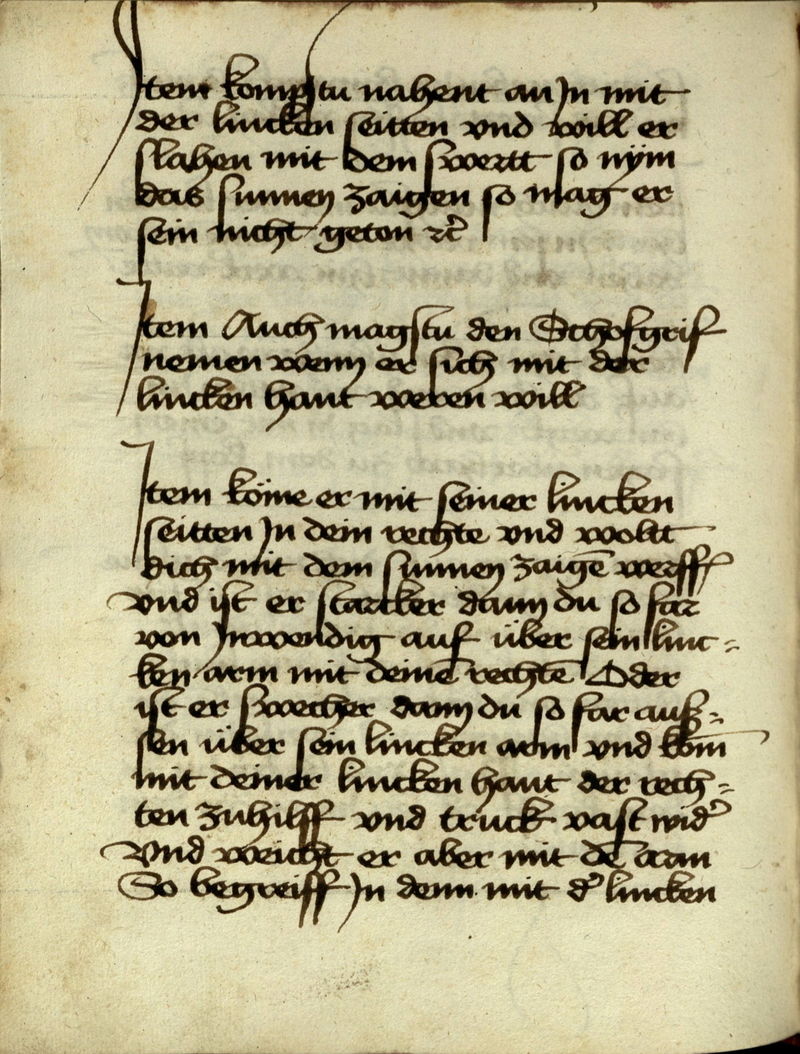 Item kompstu nahent an In mit
der lincken seitten vnd will er
slahen mit dem swertt so nÿm
das sunnen zaigen so mag er
sein nicht geton ꝛc̃
Item Auch magstu den Schosgrif
nemen wenn er sich mit der
lincken hant weren will
Item köme er mit seiner lincken
seitten In dein rechte vnd woltt
dich mit dem sunnen zaigē werff
vnd ist er starcker dann du so far
von Inwendig auf über sein linc=
ken arm mit deinē rechtē Oder
ist er swecher dann du so far auß=
sen über sein lincken arm vnd kom̄
mit deiner lincken hant der rech=
ten zuhilff vnd truck vast nid᷑
Vnd weicht er aber mit dē arm
So begreiff In denn mit d᷑ lincken